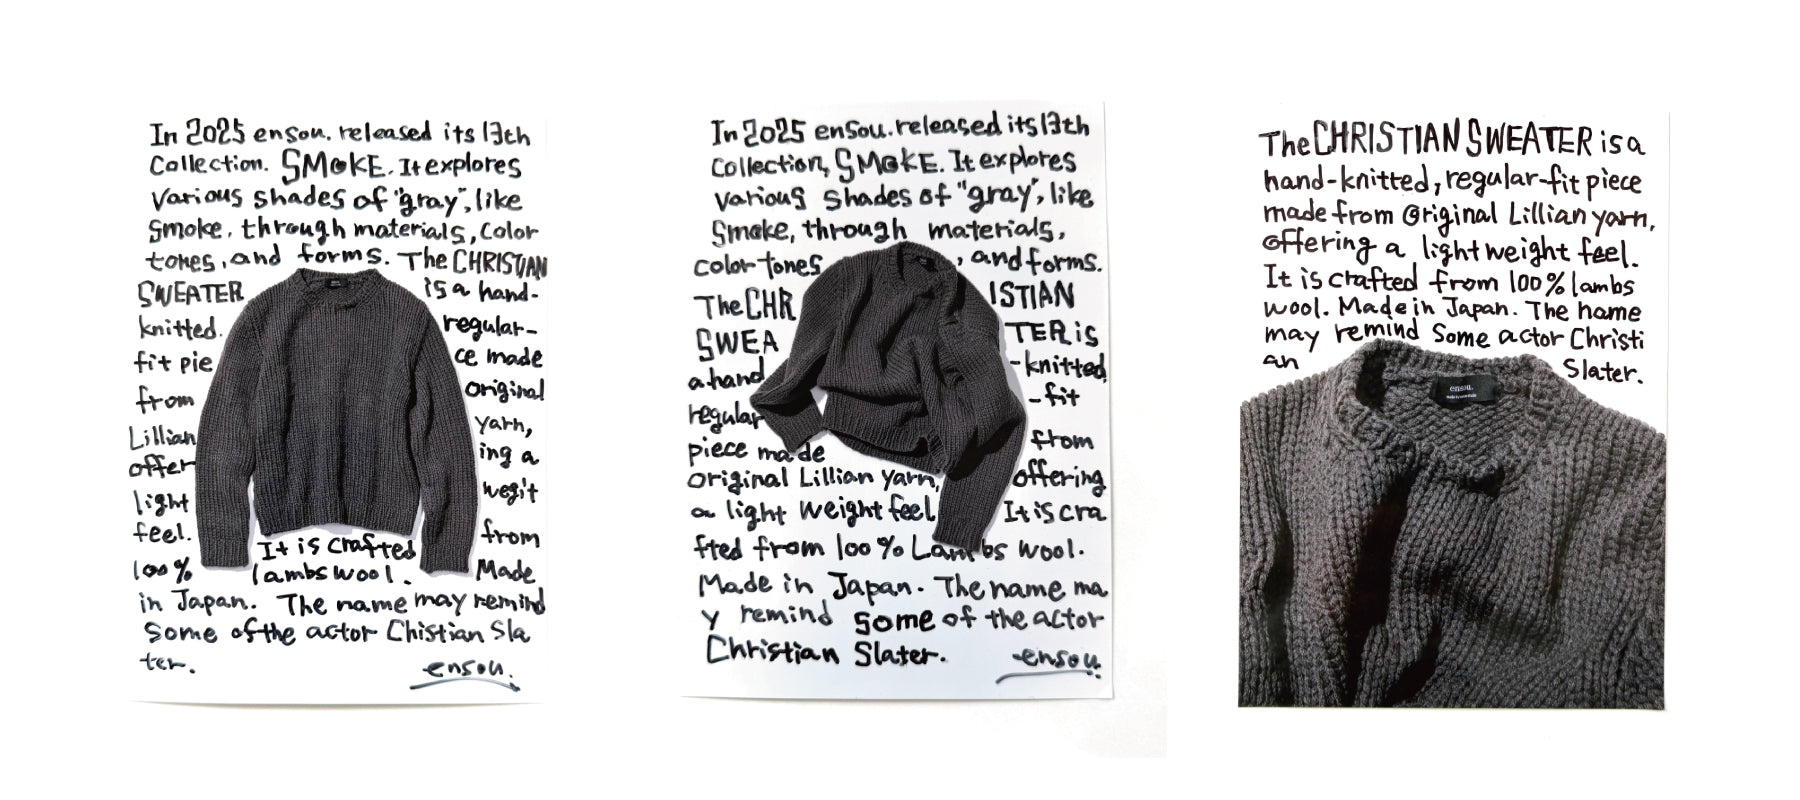 In 2025 ensou. released its 13th
Collection. SMOKE. It explores
various shades of "gray", like
smoke, through materials, color
tones, and forms. The CHRISTIAN
SWEATER is a hand-
knitted. regular-
fit pie ce made
from original
Lillian yarn,
offer ing a
light wegit
feel. from
It is crafted
100% lambs wool. Made
in Japan. The name may remind
some of the actor Chistian Sla
ter.
ensou.
In 2025 ensou. released its 13th
Collection, SMOKE. It explores
various shades of "gray", like
smoke, through materials,
color tones , and forms.
The CHR ISTIAN
SWEA TER is
a hand -knitted,
regular -fit
piece made from
original Lillian yarn, offering
a light weight feel It is cra
fted from 100% Lambs wool.
Made in Japan. The name ma
y remind some of the actor
Christian Slater.
ensou.
The CHRISTIAN SWEATER is a
hand-knitted, regular-fit piece
made from original Lillian yarn,
offering a light weight feel.
It is crafted from 100% lambs
wool. Made in Japan. The name
may remind some actor Christi
an Slater.
ensou.